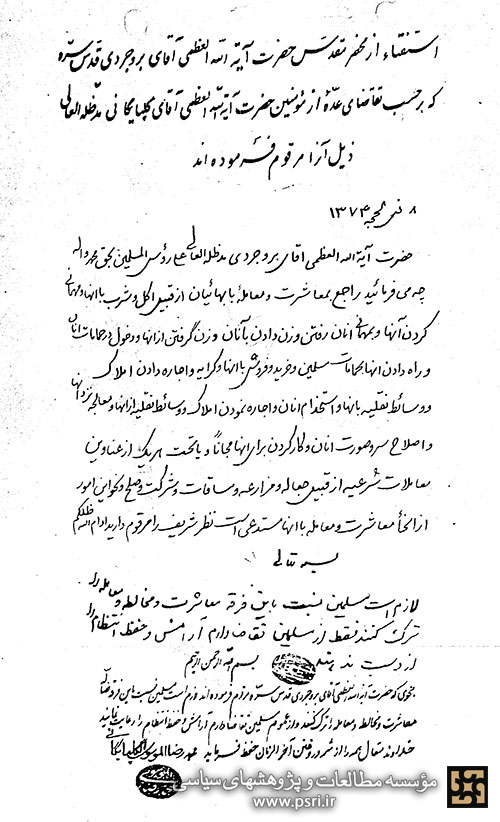 استفتاء از محضر مقدس حضرت آیة الله العظمی آقای بروجردی قدس سره
که بر حسب تقاضای عدّهٔ از مؤمنین حضرت آیة الله العظمی آقای گلپایگانی مدظله العالی
ذیل آنرا مرقوم فرموده اند
۸ ذی الحجه ۱۳۷۴
حضرت آیة الله العظمی اقای بروجردی مدظله العالی علی رؤس المسلمین بحق محمد و اله
چه می فرمائید راجع بمعاشرت و معاملهٔ با بهائیان از قبیل اکل و شرب با انها و مهمانی
کردن آنها و بمهمانی انان رفتن و زن دادن بآنان و زن گرفتن از انها و دخول در حمامات انان
و راه دادن انها بحمامات مسلمین و خرید و فروش با انها و کرایه و اجاره دادن املاک
و وسائط نقلیه بانها و استخدام انان و اجاره نمودن املاک و وسائط نقلیه از انها و معالجه نزد آنها
و اصلاح سر و صورت انان و کار کردن برای انها مجاناً و یا تحت هر یک از عناوین
معاملات شرعیه از قبیل جعاله و مزارعه و مساقات و شرکت و صلح و نحو این امور
از انحأ معاشرت و معامله با انها مستدعی است نظر شریف را مرقوم دارید ادام الله ظلکم
بسمه تعالی
لازم است مسلمین نسبت باین فرقه معاشرت و مخالطه و معامله را
ترک کنند فقط از مسلمین تقاضا دارم آرامش و حفظ انتظام را
از دست ندهند
بسم الله الرحمن الرحیم
حضرت آیة الله العظمی آقای بروجردی قدس سره مرقوم فرموده اند لازم است مسلمین نسبت باین فرقه
معاشرت و مخالطه و معامله را ترک کنند و از عموم مسلمین تقاضا دارم آرامش و حفظ انتظام را رعایت نمایند
خداوند متعال همه را از شرور و فتن آخر الزمان حفظ فرماید محمد رضا الموسوی الگلپایگانی
مؤسسه مطالعات و پژوهشهای سیاسی
www.psri.ir